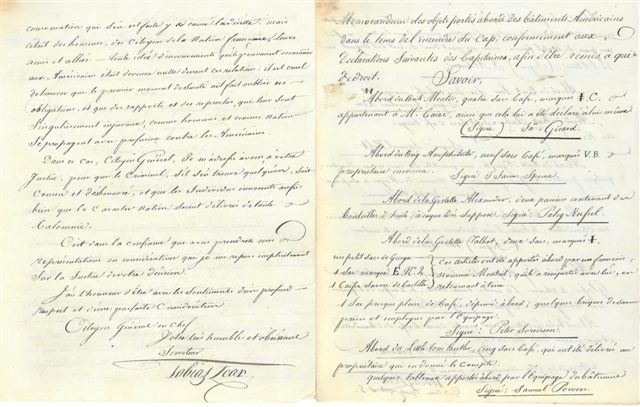 consommation qui s'en est faite y a causé la disette, mais
c'était des hommes, des Citoyens de la Nation française, leurs
amis et alliés. toute idée d'inconvenients qu'ils pouvaient occasionner
aux Américains était devenue nulle devant ces relations. il est cruel
de trouver que le premier moment de Santé ait fait oublier ces
obligations, et que des rapports et des reproches, que leur sont
Singulierement injurieux, comme hommes et comme nation
Se propagent avec profusion contre les Américains.
Dans ce cas, Citoyen Général, Je m'adresse avec à votre
Justice, pour que le Criminel, s'il s'en trouve quelqu'un, soit
Connu et déshonoré, et que les Individus innocents aussi
bien que le Caractère Nation soient délivrés de toute
Calomnie.
C'est dans la confiance que vous prendrez mes
représentations en considération que je me repose implicitement
Sur la Justice de votre décision.
J'ai l'honneur d'être avec les sentiments d'un profond
respect et d'une parfaite Considération
Citoyen Général en Chef
Votre très humble et obéissant
Serviteur
Tobias Lear.
Memorandum des objets portés abord des bâtiments Américains
dans le tems de l'incendie du Cap, conformément aux
Déclarations Suivantes des Capitaines, afin d'être remis à qui
de droit.
Savoir,
Abord du Brik Mentor, quatre sacs Café, marqués ‡ C.
appartenant à M. Casse, ainsi que cela lui a été déclaré à lui même
(Signé) Sa. Girard.
Abord du Brig Amphitrite, neuf sacs Café, marqués V.B
propriétaire inconnu.
Signé
Abord de la Goelette Alexander, deux paniers contenant des
bouteilles d'huile, à ce qu'on suppose. Signé: Peleg
Abord de la Goelette Talbot, deux Sacs, marqués ‡
un petit sac de Ginga
1 sac marqué E. N. L.
1 Caisse Savon de Castille
Ces articles ont été apportés abord par un français,
nommé qui l'a emporté avec lui, en
retournant à terre.
1 Sac presque plein de Café, déposé à bord; quelques briques de Savon
pris et employés par l'Equipage.
Signé: Peter Sorenson.
Abord du Little Tom Panther, cinq sacs Café, qui ont été délivrés au
propriétaire qui en donne le Compte
quelques tableaux apportés abord par l'Equipage du bâtiment
Signé: Samuel Powers.